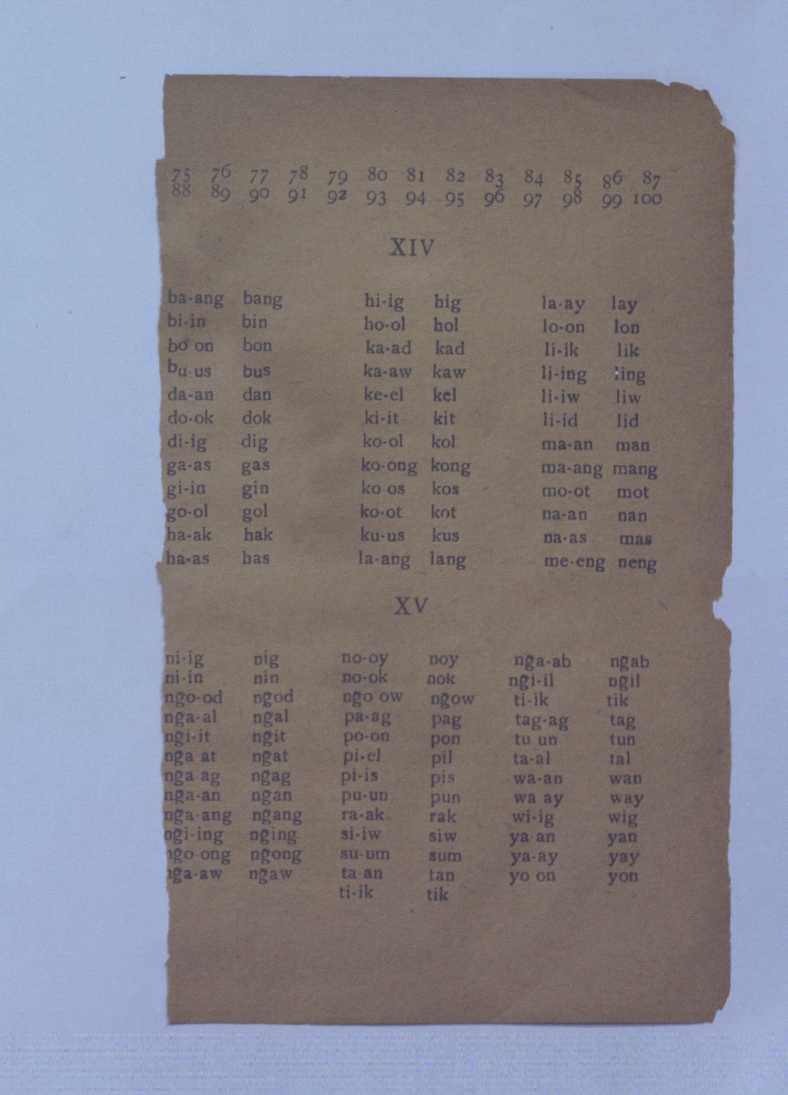 75 76 77 78 79 80 81 82 83 84 85 86 87
88 89 90 91 92 93 94 95 96 97 98 99 100
XIV
ba-ang bang hi-ig hig la-ay lay
bi-in bin ho-ol hol lo-on lon
bo on bon ka-ad kad li-ik lik
bu us bus ka-aw kaw li-ing ling
da-an dan ke-el kel li-iw liw
do-ok dok ki-it kit li-id lid
di-ig dig ko-ol kol ma-an man
ga-as gas ko-ong kong ma-ang mang
gi-in gin ko os kos mo-ot mot
go-ol gol ko-ot kot na-an nan
ha-ak hak ku-us kus na-as mas
ha-as has la-ang lang me-eng neng
XV
ni-ig nig no-oy noy nga-ab ngab
ni-in nin no-ok nok ngi-il ngil
ngo-od ngod ngo ow ngow ti-ik tik
nga-al ngal pa-ag pag tag-ag tag
ngi-it ngit po-on pon tu un tun
nga at ngat pi-el pil ta-al tal
nga ag ngag pi-is pis wa-an wan
nga-an ngan pu-un pun wa ay way
nga ang ngang ra-ak rak wi-ig wig
ngi-ing nging si-iw siw ya an yan
ngo-ong ngong su-um sum ya-ay yay
nga-aw ngaw ta an tan yo on yon
ti-ik tik